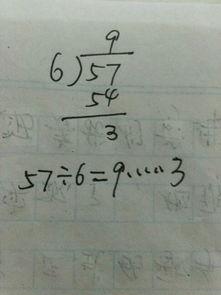 9
6)57
54
3
57÷6=9……3